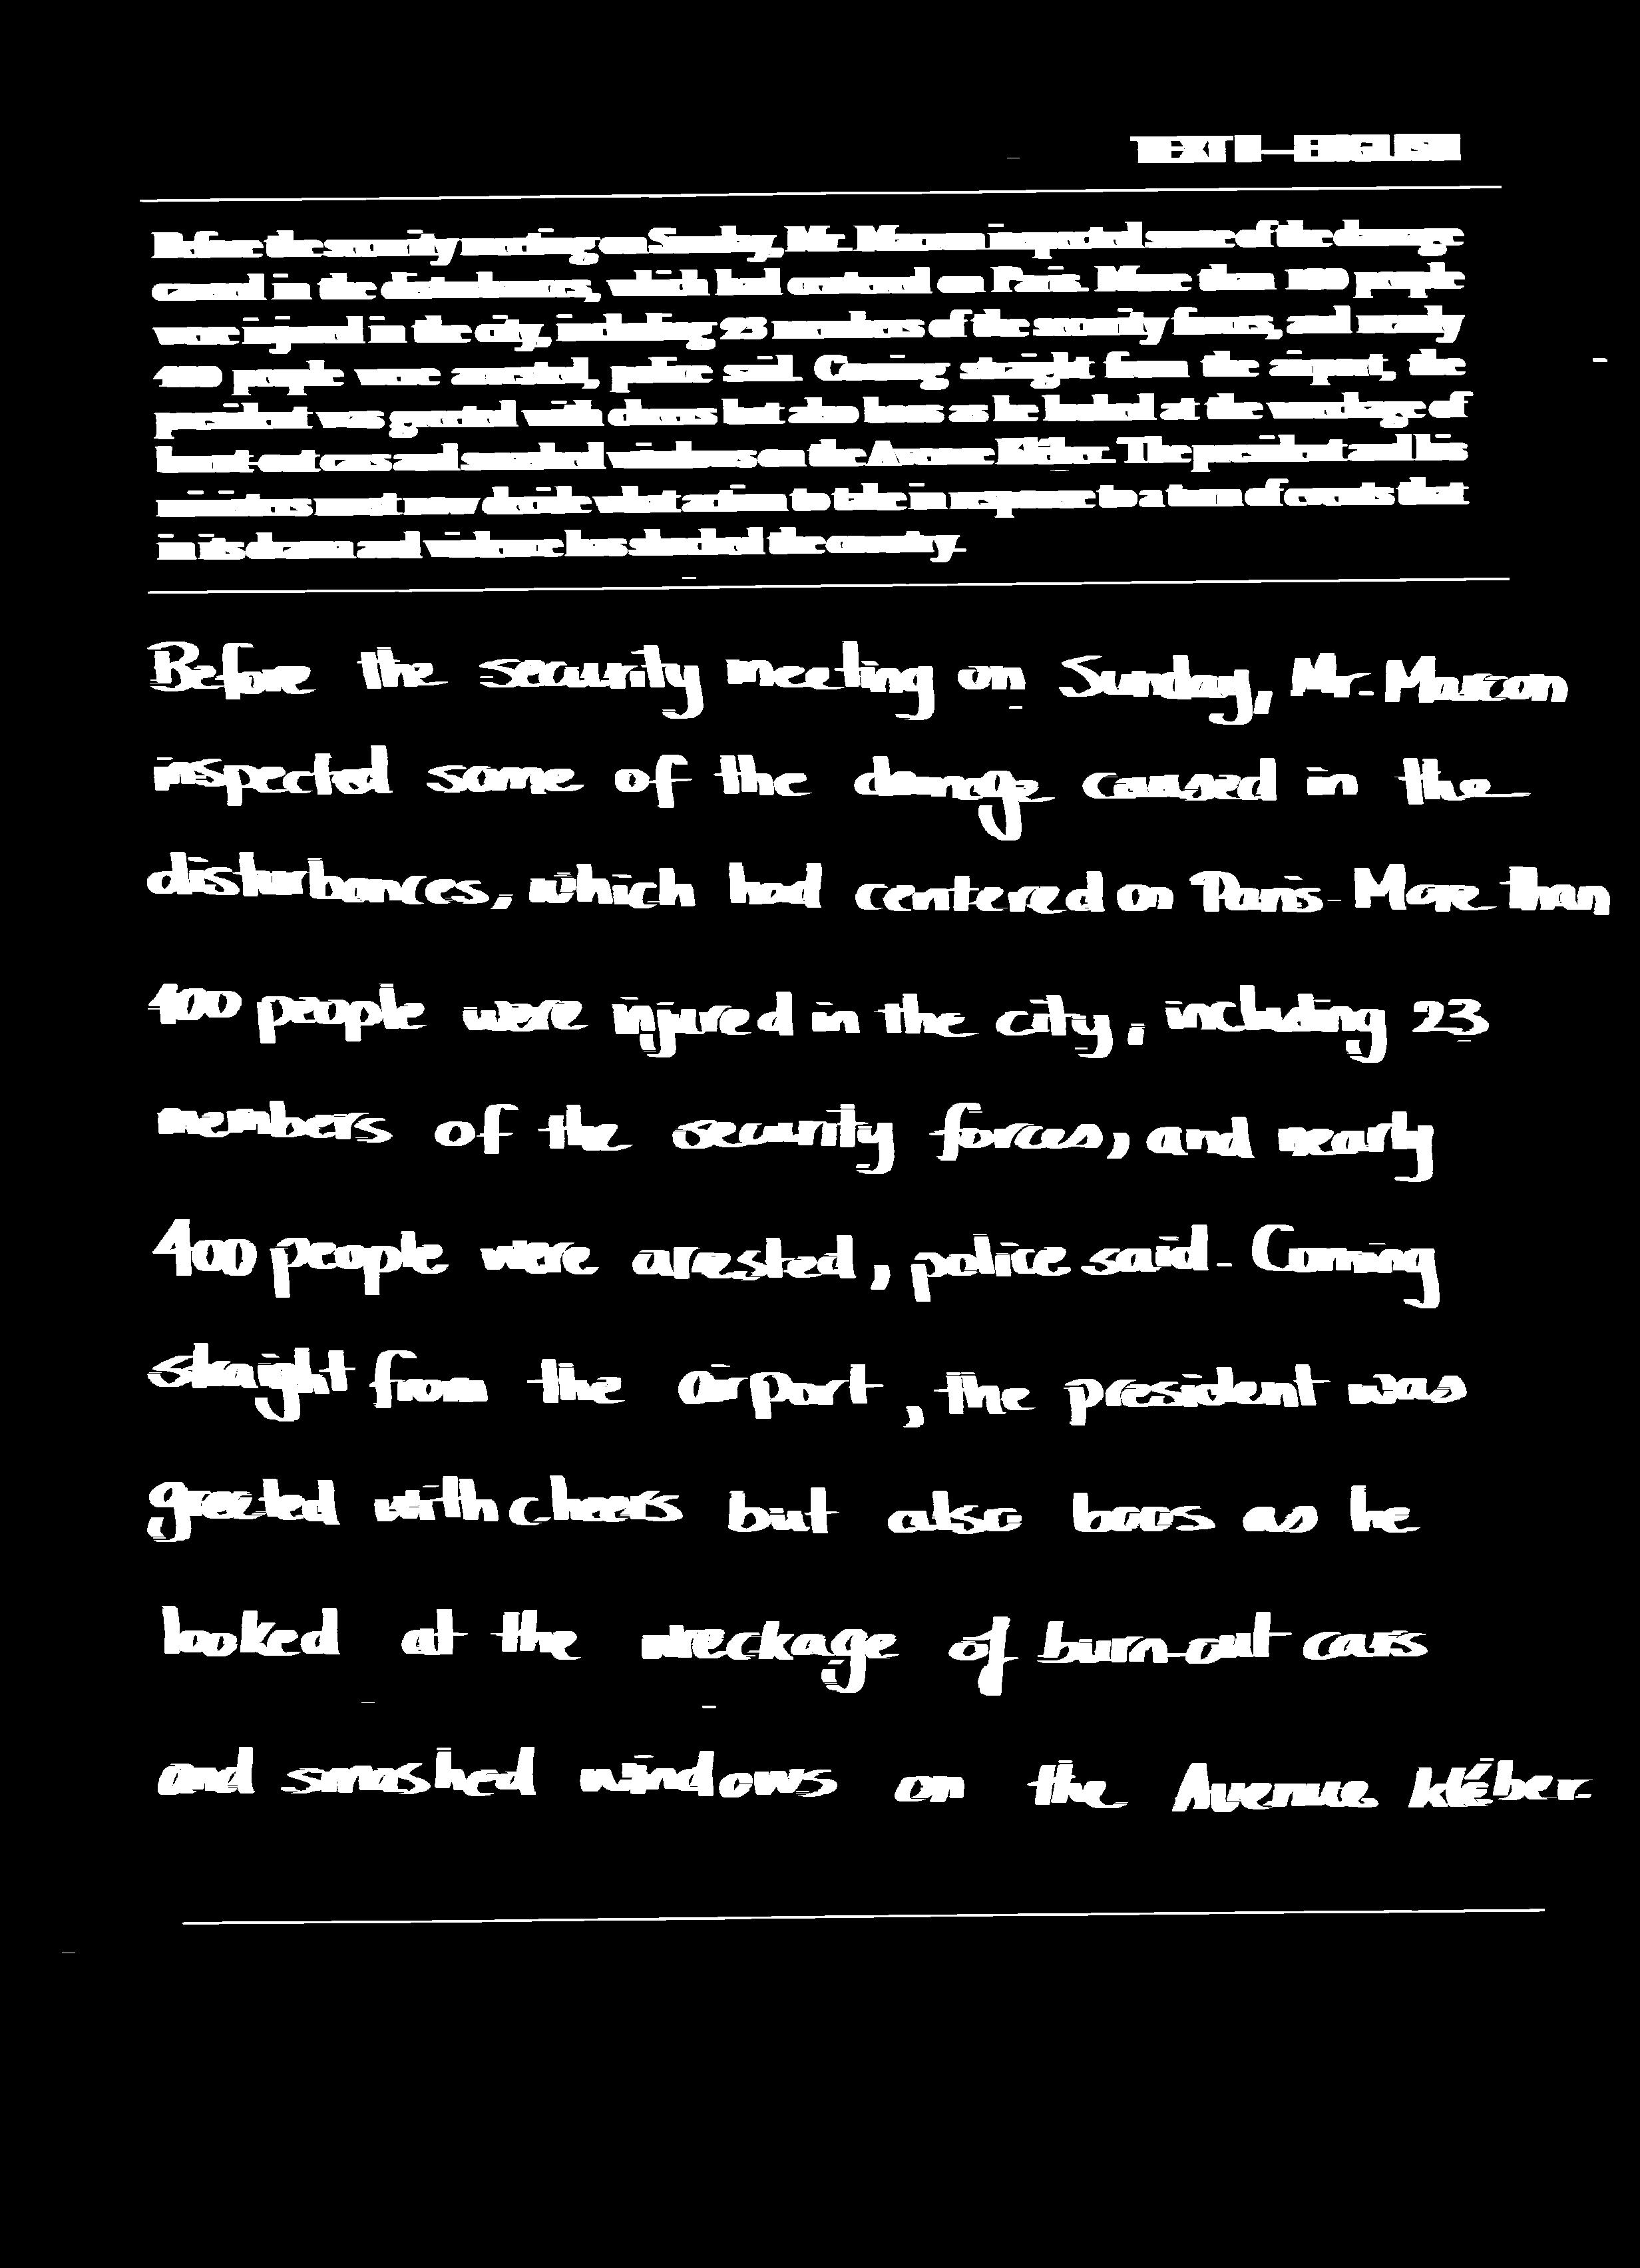 TEXT II—ENGLISH
Before the security meeting on Sunday, Mr. Macron inspected some of the damage
caused in the disturbances, which had centered on Paris. More than 100 people
were injured in the city, including 23 members of the security forces, and nearly
400 people were arrested, police said. Coming straight from the airport, the
president was greeted with cheers but also boos as he looked at the wreckage of
burnt-out cars and smashed windows on the Avenue Kléber. The president and his
ministers must now decide what action to take in response to a turn of events that
in its drama and violence has shocked the country.
Before the security meeting on Sunday, Mr. Marcon
inspected some of the damage caused in the
disturbances, which had centered on Paris. More than
100 people were injured in the city, including 23
members of the security forces, and nearly
400 people were arrested, police said. Coming
straight from the airport, the president was
greeted with cheers but also boos as he
looked at the wreckage of burn-out cars
and smashed windows on the Avenue kléber.